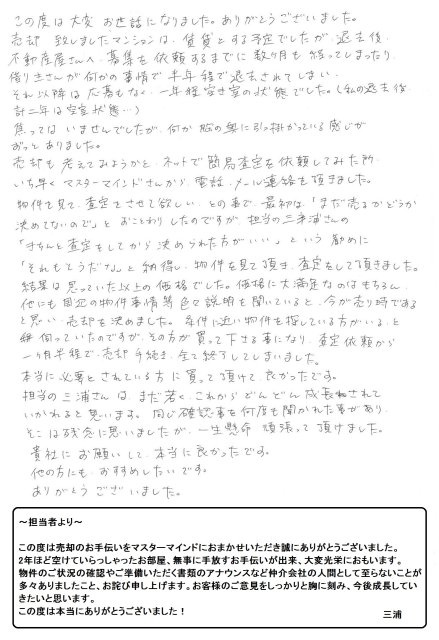 この度は大変お世話になりました。ありがとうございました。
売却致しましたマンションは、賃貸とする予定でしたが、退去後、
不動産屋さんへ募集を依頼するまでに数ヶ月も経ってしまったり、
借り主さんが何かの事情で半年程で退去されてしまい、
それ以降は応募もなく、一年程空き室の状態でした。(私の退去後
計二年は空室状態…)
焦ってはいませんでしたが、何か胸の奥に引っ掛かっている感じが
ずっとありました。
売却も考えてみようかと、ネットで簡易査定を依頼してみた所、
いち早くマスターマインドさんから、電話、メール連絡を頂きました。
物件を見て、査定をさせて欲しいとの事で、最初は「まだ売るかどうか
決めてないので」とおことわりしたのですが、担当の三浦さんの
「きちんと査定をしてから決められた方がいい」という勧めに
「それもそうだな」と納得し、物件を見て頂き、査定をして頂きました。
結果は思っていた以上の価格でした。価格に大満足なのはもちろん、
他にも周辺の物件事情等色々説明を聞いていると、今が売り時である
と思い、売却を決めました。条件に近い物件を探している方がいると
伺っていたのですが、その方が買って下さる事になり、査定依頼から
一ヶ月半程で、売却手続き、全て終了してしまいました。
本当に必要とされている方に買って頂けて、良かったです。
担当の三浦さんは、まだ若く、これからどんどん成長されて
いかれると思います。同じ確認事を何度も聞かれた事があり、
そこは残念に思いましたが、一生懸命頑張って頂けました。
貴社にお願いして、本当に良かったです。
他の方にも、おすすめしたいです。
ありがとうございました。
～担当者より～
この度は売却のお手伝いをマスターマインドにおまかせいただき誠にありがとうございました。
2年ほど空けていらっしゃったお部屋、無事に手放すお手伝いが出来、大変光栄におもいます。
物件のご状況の確認やご準備いただく書類のアナウンスなど仲介会社の人間として至らないことが
多々ありましたこと、お詫び申し上げます。お客様のご意見をしっかりと胸に刻み、今後成長してい
きたいと思います。
この度は本当にありがとうございました！
三浦